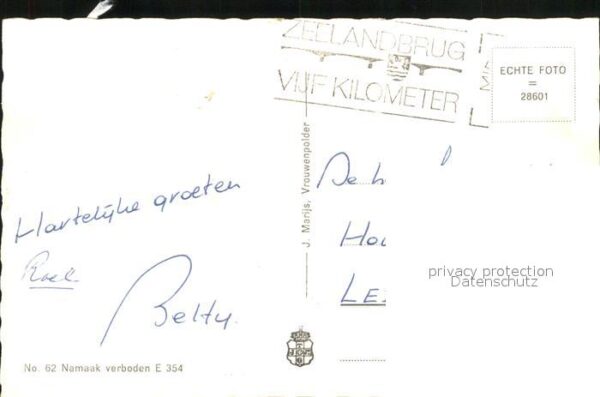 ZEELANDBRUG
VIJF KILOMETER
MID
ECHTE FOTO
=
28601
J. Marijs, Vrouwenpolder
Hartelijke groeten
Roel
Betty.
De h
Hou
LE
privacy protection
Datenschutz
No. 62 Namaak verboden E 354